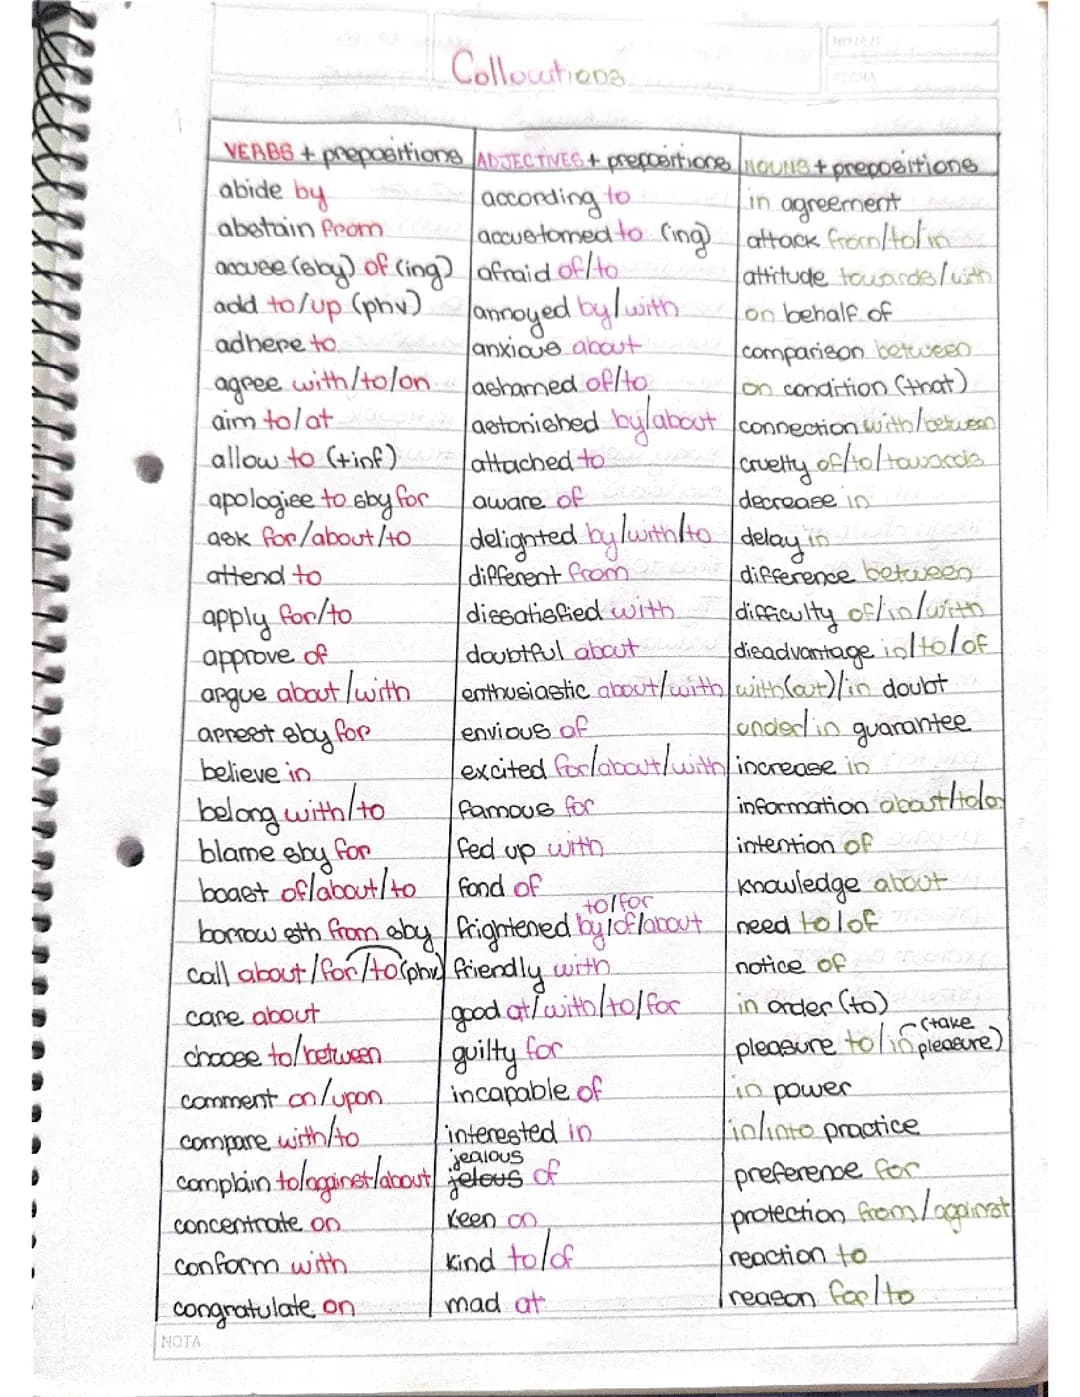 Collocations
VERBS + prepositions ADJECTIVES + prepositions NOUNS + prepositions
abide by according to in agreement
abstain from accustomed to (ing) attack from/to/in
accuse (sby) of (ing) afraid of/to attitude towards/with
add to/up (phv) annoyed by/with on behalf of
adhere to anxious about comparison between
agree with/to/on ashamed of/to on condition (that)
aim to/at astonished by/about connection with/between
allow to (+inf) attached to cruelty of/to/towards
apologise to sby for aware of decrease in
ask for/about/to delighted by/with/to delay in
attend to different from difference between
apply for/to dissatisfied with difficulty of/in/with
approve of doubtful about disadvantage in/to/of
argue about/with enthusiastic about/with with(out)/in doubt
arrest sby for envious of under/in guarantee
believe in excited for/about/with increase in
belong with/to famous for information about/to/on
blame sby for fed up with intention of
boast of/about/to fond of knowledge about
borrow sth from sby frightened by/of/about to/for need to/of
call about/for/to (phv) friendly with notice of
care about good at/with/to/for in order (to)
choose to/between guilty for pleasure to/in (take pleasure)
comment on/upon incapable of in power
compare with/to interested in in/into practice
complain to/against/about jealous jelous of preference for
concentrate on keen on protection from/against
conform with kind to/of reaction to
congratulate on mad at reason for/to
NOTA